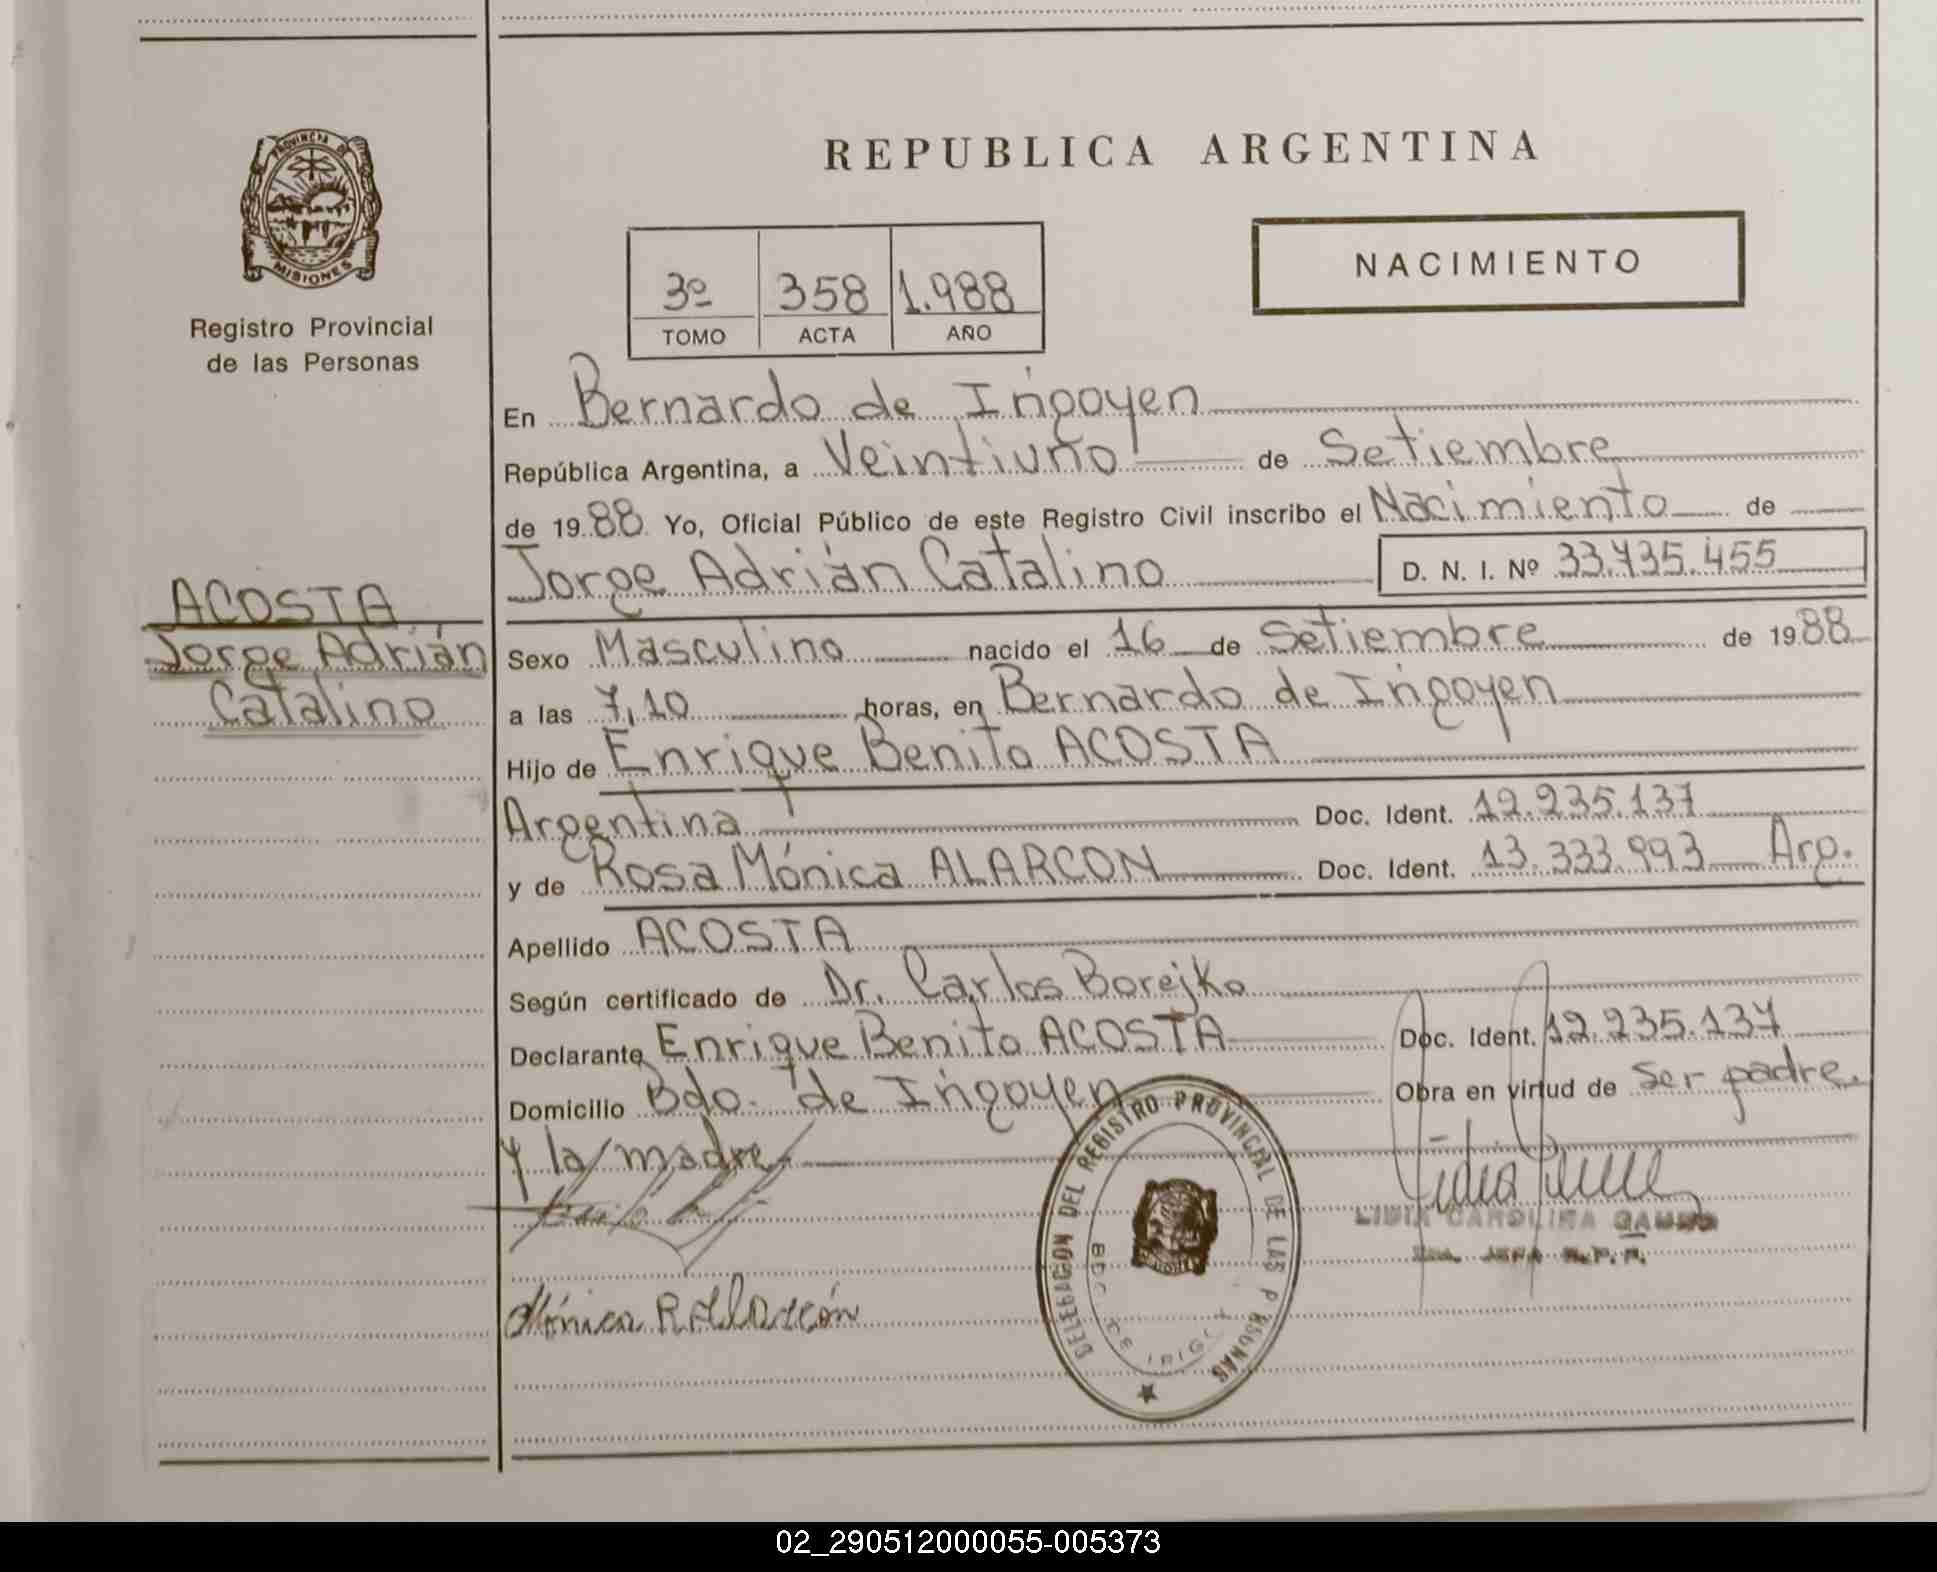 REPUBLICA ARGENTINA
PROVINCIA DE
MISIONES
Registro Provincial
de las Personas
NACIMIENTO
3º 358 1.988
TOMO ACTA AÑO
En Bernardo de Irigoyen
República Argentina, a Veintiuno de Setiembre
de 1988 Yo, Oficial Público de este Registro Civil inscribo el Nacimiento de
Jorge Adrián Catalino D. N. I. Nº 33.735.455
ACOSTA
Jorge Adrián
Catalino
Sexo Masculino nacido el 16 de Setiembre de 1988
a las 7,10 horas, en Bernardo de Irigoyen
Hijo de Enrique Benito ACOSTA
Argentina Doc. Ident. 12.235.137
y de Rosa Mónica ALARCON Doc. Ident. 13.333.993 Arg.
Apellido ACOSTA
Según certificado de Dr. Carlos Borejko
Declarante Enrique Benito ACOSTA Doc. Ident. 12.235.137
Domicilio Bdo. de Irigoyen Obra en virtud de Ser padre.
y la madre
DELEGACION DEL REGISTRO PROVINCIAL DE LAS P RSONAS
BDO DE IRIGOY
LIDIA CAROLINA
JEFA R.P.P.
Mónica R Alarcón
02_290512000055-005373